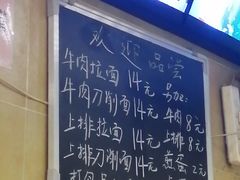 欢迎品尝
牛肉拉面 14元 另加:
牛肉刀削面 14元 牛肉 8元
上排拉面 14元 上排 8元
上排刀削面 14元 煎蛋 2元